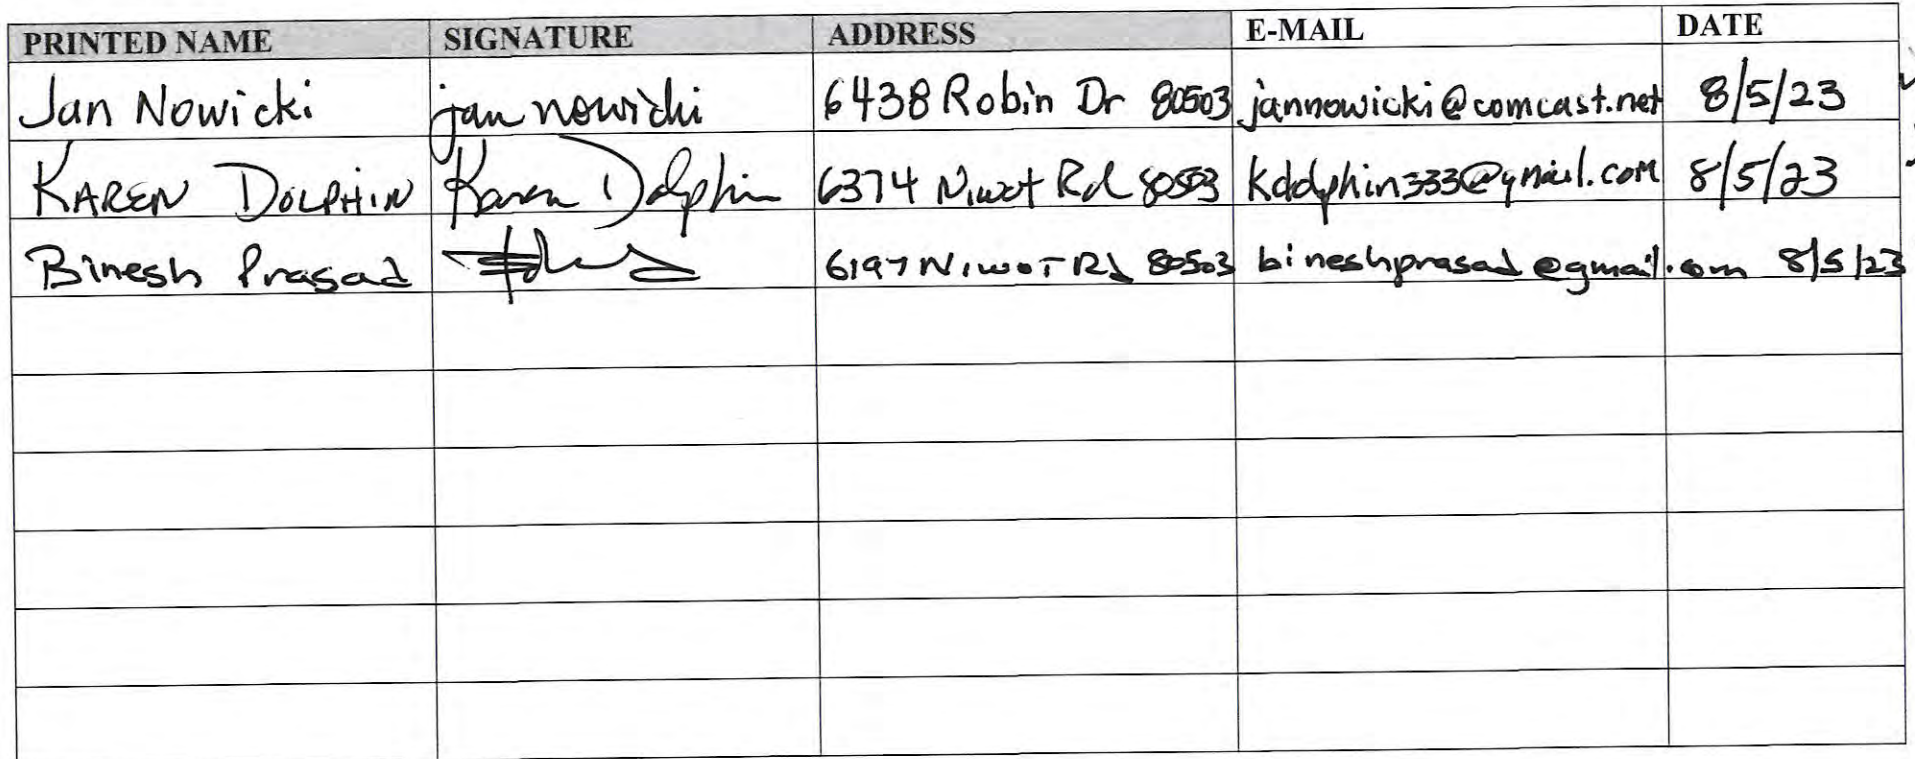 PRINTED NAME SIGNATURE ADDRESS E-MAIL DATE
Jan Nowicki jan nowicki 6438 Robin Dr 80503 jannowicki@comcast.net 8/5/23
KAREN DOLPHIN Karen Dolphin 6374 Niwot Rd 80503 kdolphin333@gmail.com 8/5/23
Binesh Prasad 6197 Niwot Rd 80503 bineshprasad@gmail.com 8/5/23